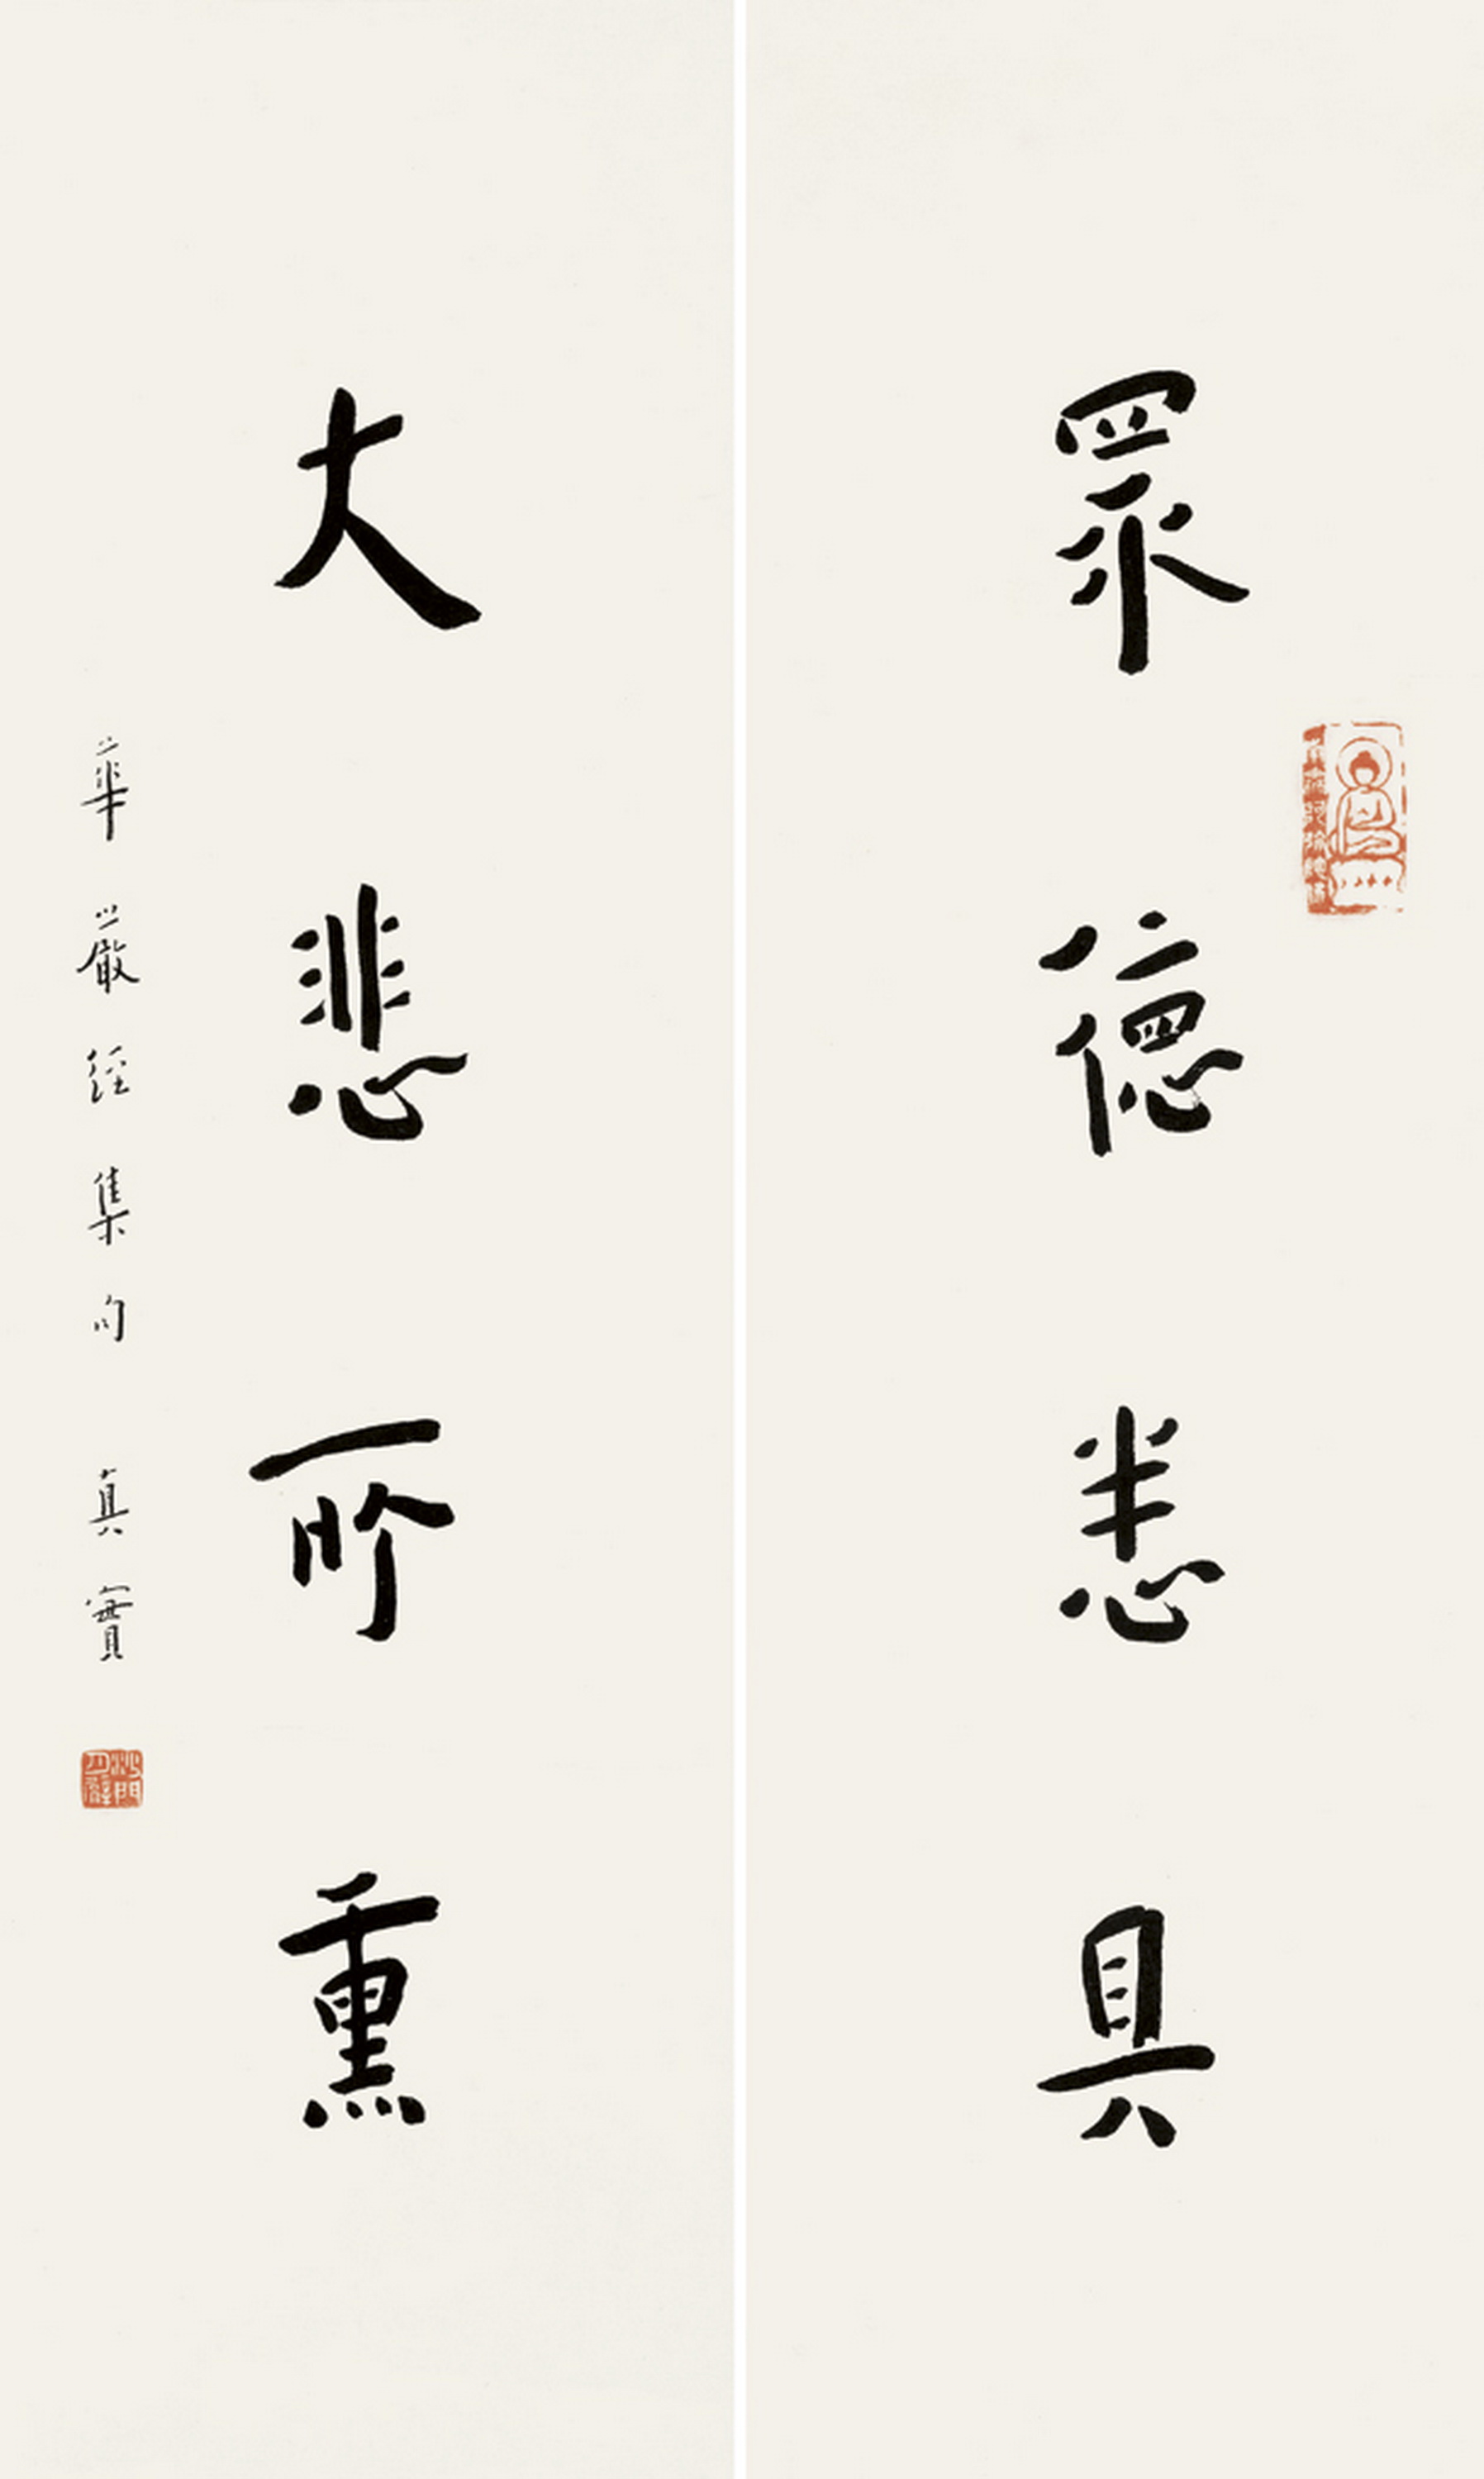 眾德悉具
大悲所熏
華嚴經集句 真實
沙門月臂